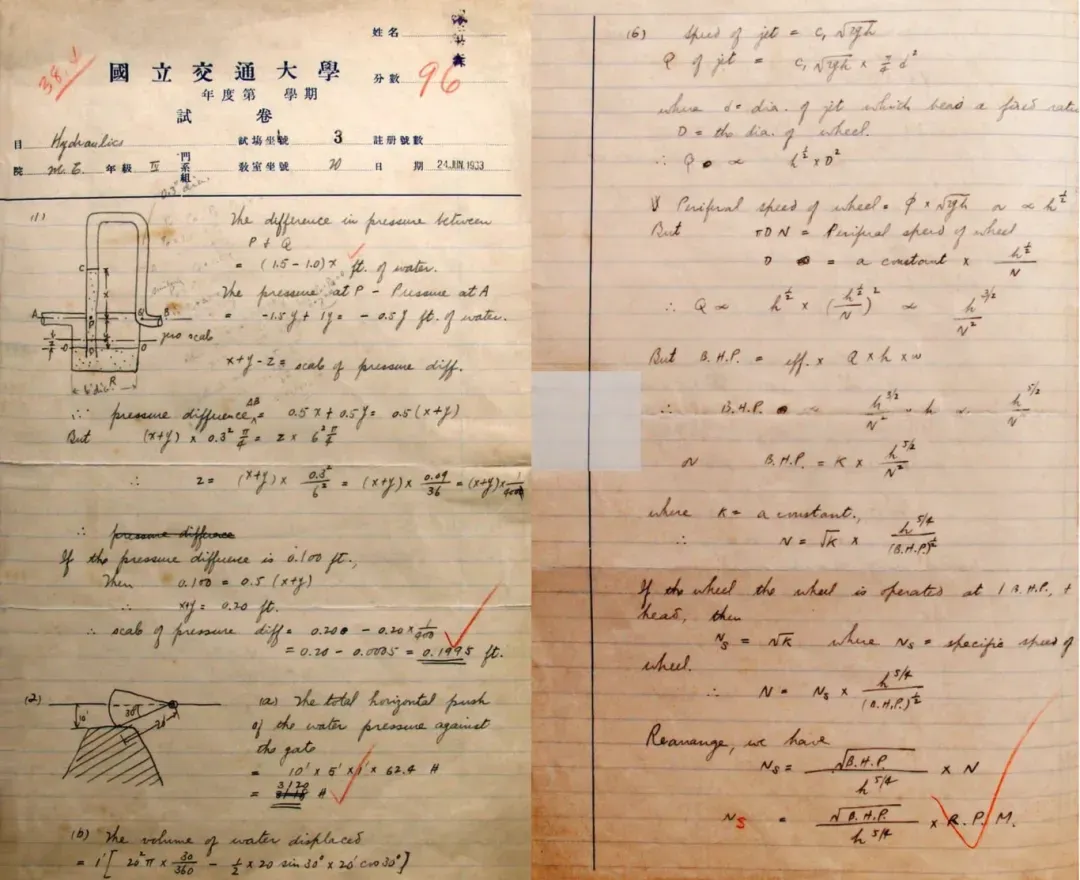 姓名
國立交通大學
分數 96
年度第 學期
38.
試卷
目 Hydraulics 試場坐號 3 註冊號數
院 M.E. 年級 IV 門系組 教室坐號 20 日期 24 JUN. 1933
0.3" dia.
(1)
The difference in pressure between
P & Q
= (1.5 - 1.0)x ft. of water.
The pressure at P - Pressure at A
= -1.5y + 1y = -0.5y ft. of water.
C
x
A
B
P
zero scale
O
O
R
6" dia.
x+y-z = scale of pressure diff.
∴ pressure difference AB = 0.5x + 0.5y = 0.5(x+y)
But (x+y) × 0.3² π/4 = z × 6² π/4
∴ z = (x+y) × 0.3²/6² = (x+y) × 0.09/36 = (x+y) × 1/400
∴ pressure difference
If the pressure difference is 0.100 ft.,
Then 0.100 = 0.5 (x+y)
∴ x+y = 0.20 ft.
∴ scale of pressure diff = 0.200 - 0.20 × 1/400
= 0.20 - 0.0005 = 0.1995 ft.
(2)
10'
30°
20'
(a) The total horizontal push
of the water pressure against
the gate
= 10' × 5' × 1' × 62.4 #
= 3120 #
(b) The volume of water displaced
= 1' [ 20² π × 30/360 - 1/2 × 20 sin 30° × 20' cos 30° ]
(6) Speed of jet = c, √2gh
Q of jet = c, √2gh × π/4 d²
where d = dia. of jet which bears a fixed ratio
D = the dia. of wheel.
∴ Q ∝ h^½ × D²
Periferal speed of wheel = φ × √2gh or ∝ h^½
But πDN = Periferal speed of wheel
D = a constant × h^½/N
∴ Q ∝ h^½ × (h^½/N)² ∝ h^3/2/N²
But B.H.P. = eff. × Q × h × w
∴ B.H.P. ∝ h^3/2/N² × h ∝ h^5/2/N²
or B.H.P. = K × h^5/2/N²
where K = a constant.,
∴ N = √K × h^5/4/(B.H.P.)^½
If the wheel the wheel is operated at 1 B.H.P., +
head, then
Ns = √K where Ns = specific speed of
wheel.
∴ N = Ns × h^5/4/(B.H.P.)^½
Rearrange, we have
Ns = √B.H.P./h^5/4 × N
Ns = √B.H.P./h^5/4 × R.P.M.